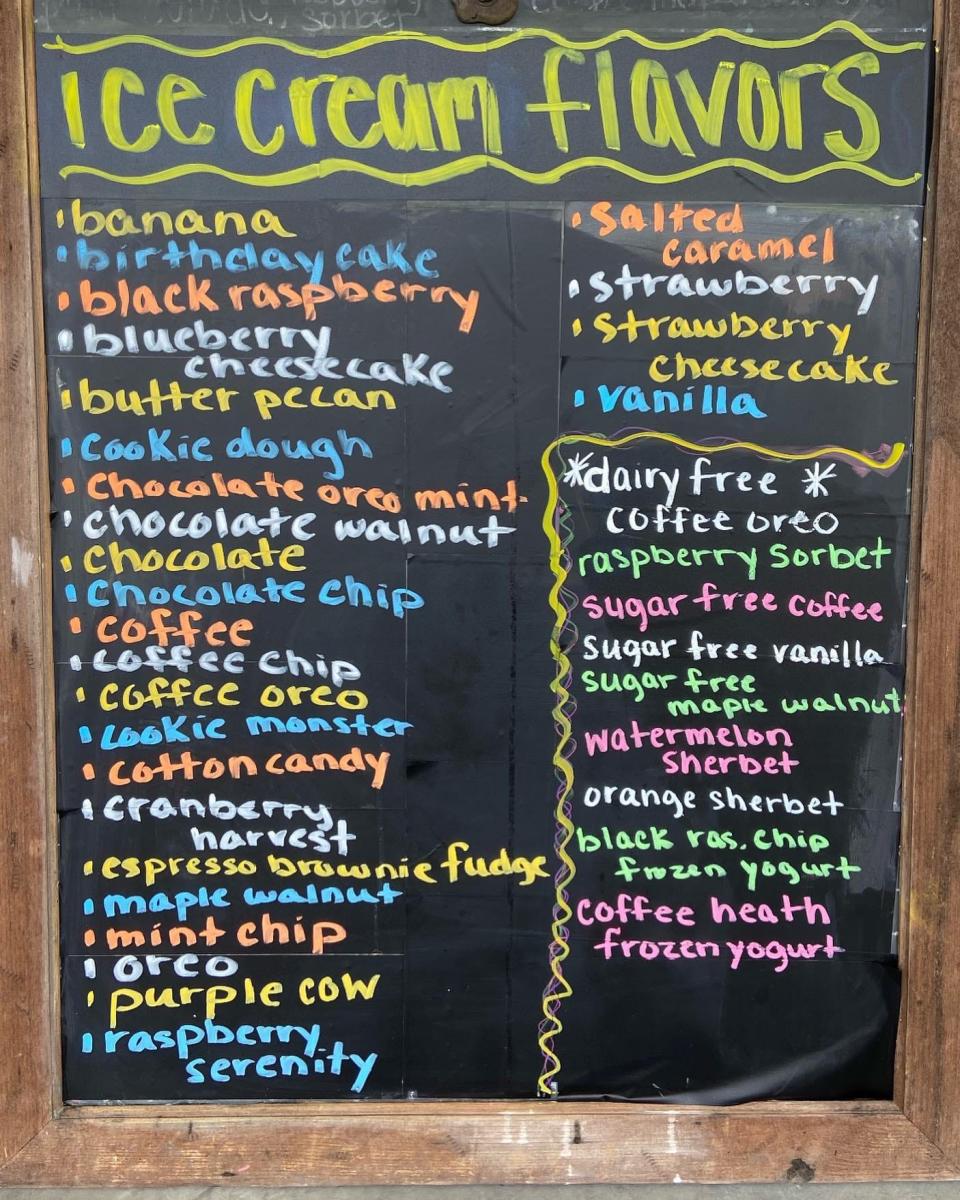 sorbet
ice cream flavors
• banana
• birthday cake
• black raspberry
• blueberry
cheesecake
• butter pecan
• cookie dough
• chocolate oreo mint
• chocolate walnut
• chocolate
• chocolate chip
• coffee
• coffee chip
• coffee oreo
• cookie monster
• cotton candy
• cranberry
harvest
• espresso brownie fudge
• maple walnut
• mint chip
• oreo
• purple cow
• raspberry
serenity
• salted
caramel
• strawberry
• strawberry
cheesecake
• vanilla
*dairy free *
coffee oreo
raspberry sorbet
sugar free coffee
sugar free vanilla
sugar free
maple walnut
watermelon
sherbet
orange sherbet
black ras. chip
frozen yogurt
coffee heath
frozen yogurt